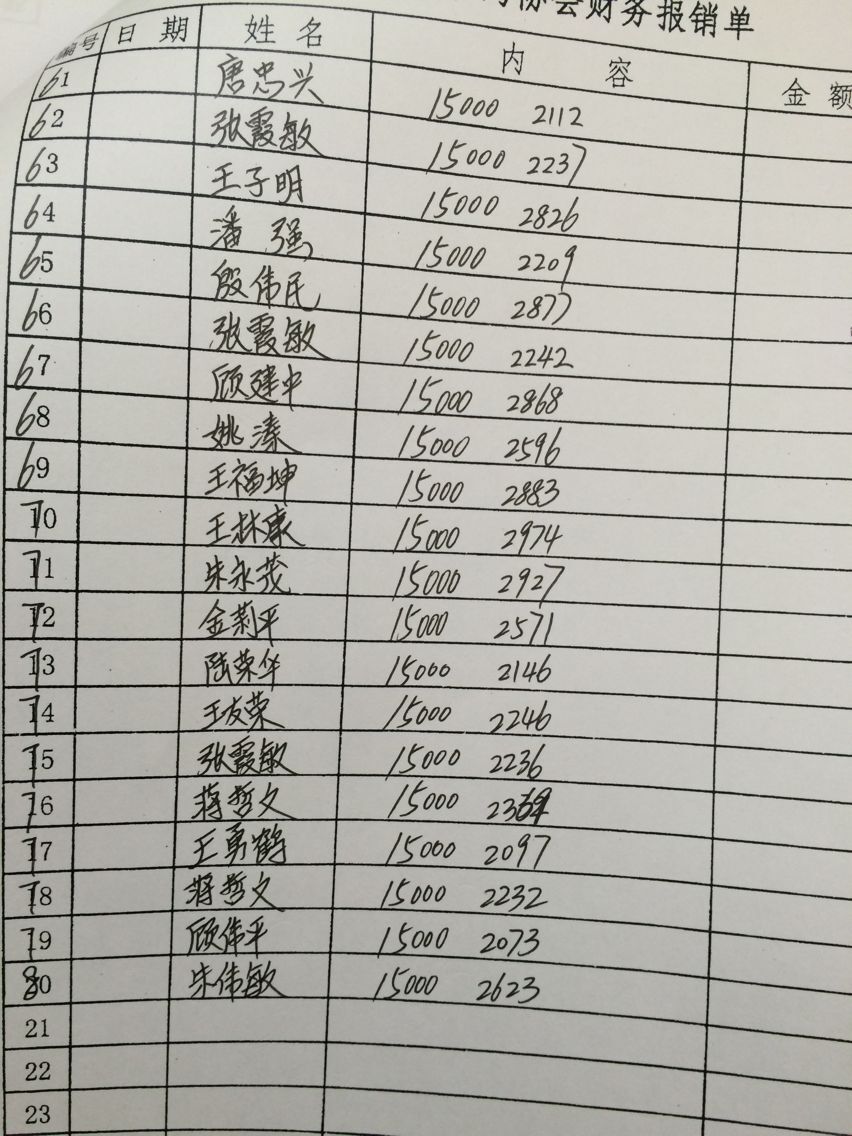 协会财务报销单
编号 日期 姓名 内容 金额
61 唐忠兴 15000 2112
62 张霞敏 15000 2237
63 王子明 15000 2826
64 潘强 15000 2209
65 殷伟民 15000 2877
66 张霞敏 15000 2242
67 顾建中 15000 2868
68 姚溱 15000 2596
69 王福坤 15000 2883
70 王林康 15000 2974
71 朱永茂 15000 2927
72 金莉平 15000 2571
73 陆荣华 15000 2146
74 王友荣 15000 2246
75 张霞敏 15000 2236
76 蒋哲文 15000
77 王勇鹤 15000 2097
78 蒋哲文 15000 2232
79 顾伟平 15000 2073
80 朱伟敏 15000 2623
21
22
23